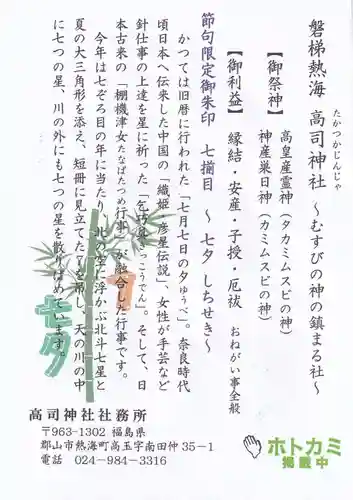 磐梯熱海 高司神社 ～むすびの神の鎮まる社～
たかつかじんじゃ
【御祭神】 高皇産霊神（タカミムスビの神）
神産巣日神（カミムスビの神）
【御利益】 縁結・安産・子授・厄祓 おねがい事全般
節句限定御朱印 七揃目 ～ 七夕 しちせき～
かつては旧暦に行われた「七月七日の夕ゅうべ」。奈良時代
頃日本へ伝来した中国の「織姫・彦星伝説」、女性が手芸など
針仕事の上達を星に祈った「乞巧奠きっこうでん」。そして、日
本古来の「棚機津女たなばたつめ行事」が融合した行事です。
今年は七ぞろ目の年に当たり、北の空に浮かぶ北斗七星と
夏の大三角形を添え、短冊に見立てた７を吊し、天の川の中
に七つの星、川の外にも七つの星を散りばめています。
七夕
高司神社社務所
〒963-1302 福島県
郡山市熱海町高玉字南田仲35－1
電話 024-984-3316
ホトカミ
掲載中